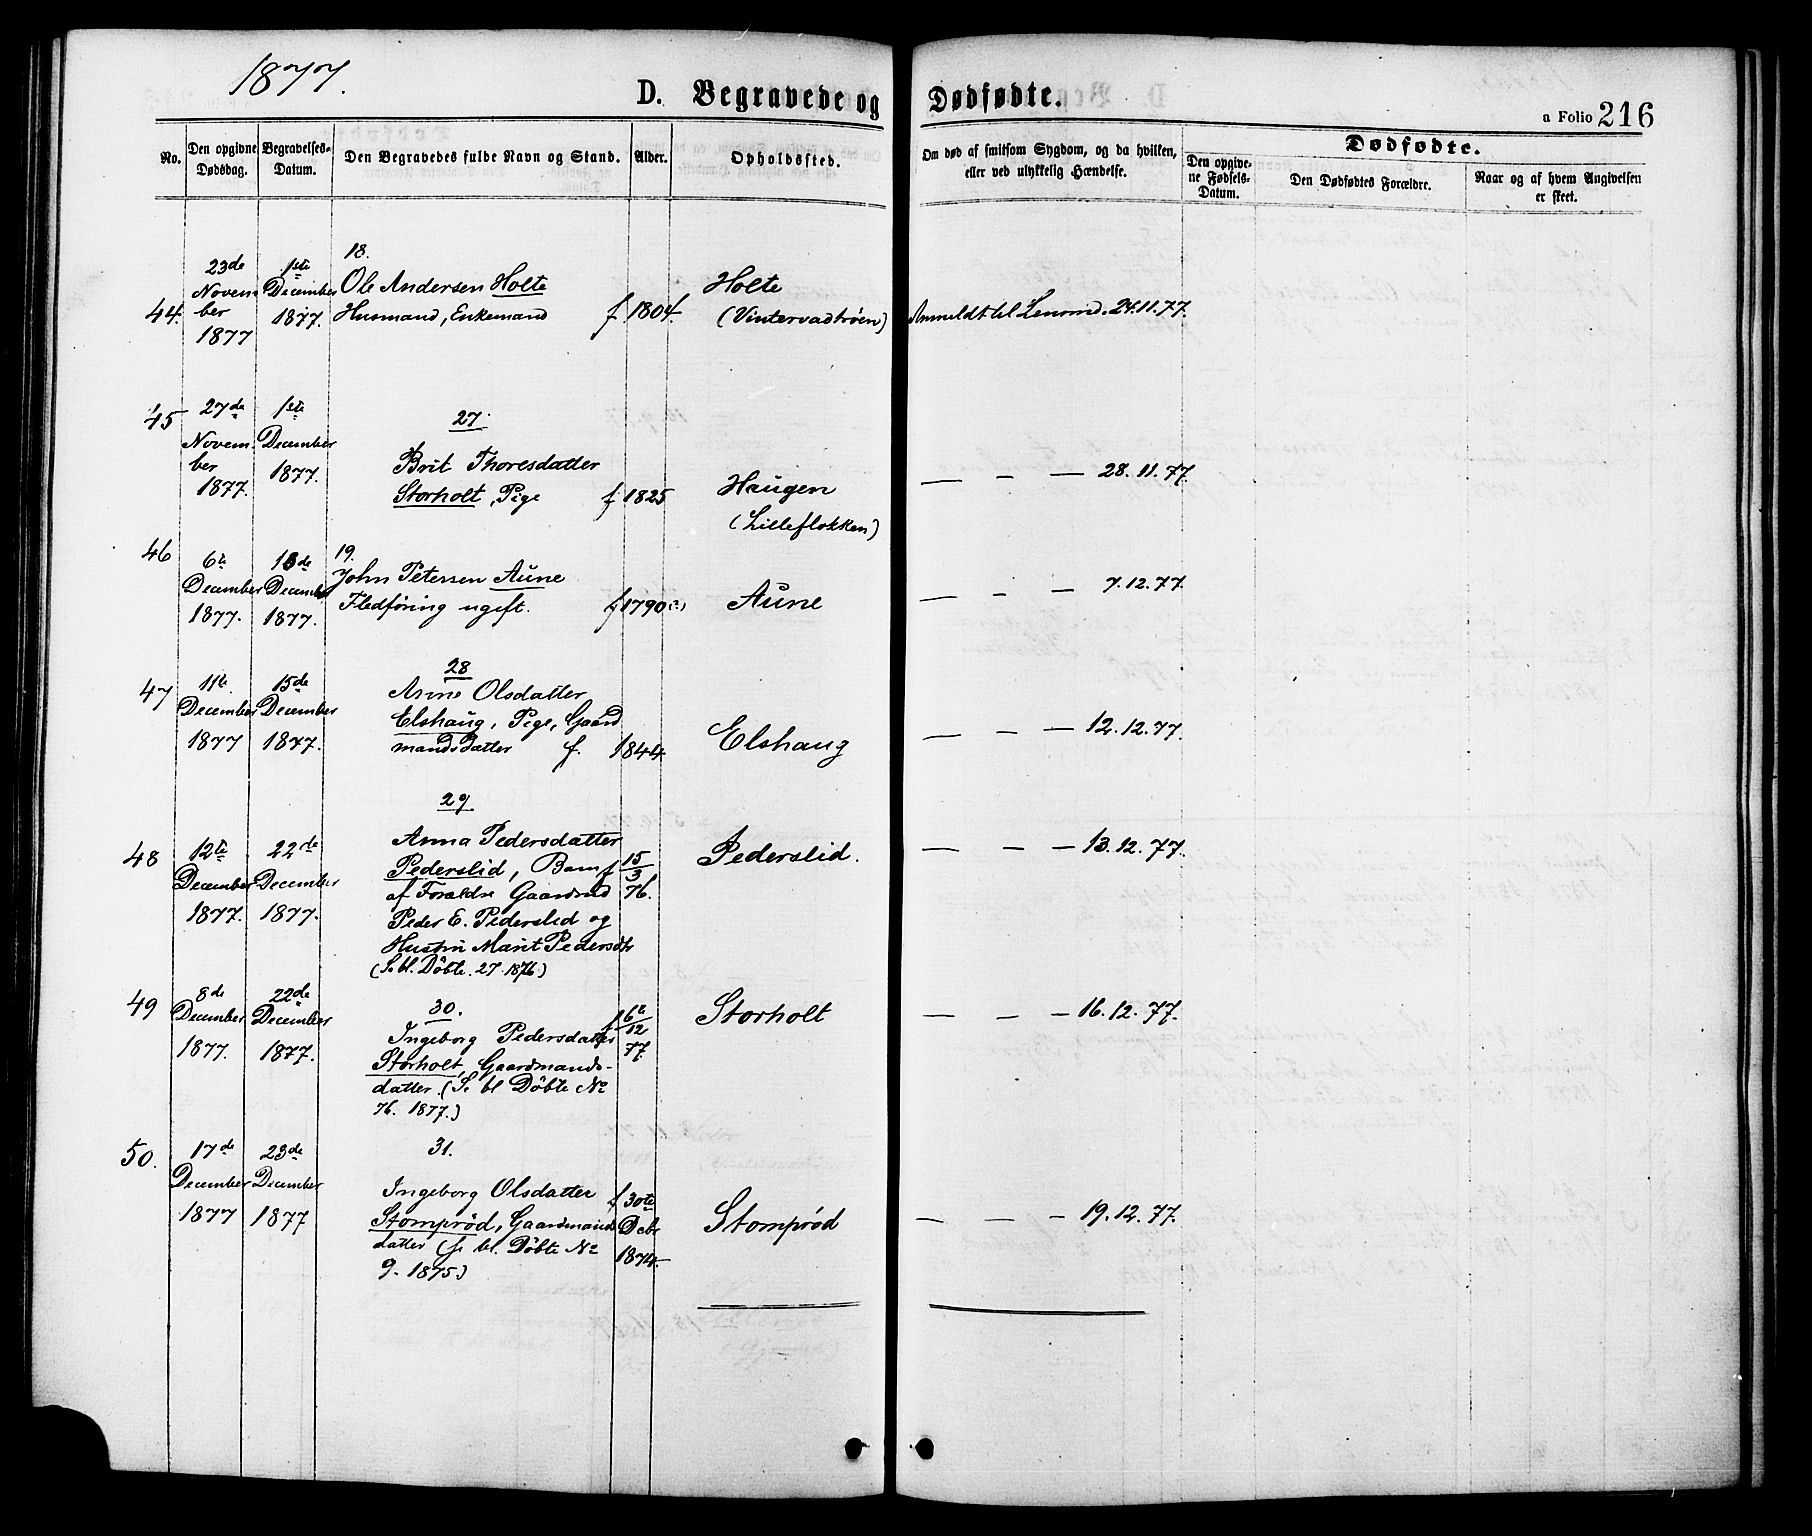 1877.
D. Begravede og Dødfødte.
a Folio 216
No.
Den opgivne Dødsdag.
Begravelses-Datum.
Den Begravedes fulde Navn og Stand.
Alder.
Opholdssted.
Om død af smitsom Sygdom, og da hvilken, eller ved ulykkelig Hændelse.
Dødfødte.
Den opgivne Fødsels-Datum.
Den Dødfødtes Forældre.
Naar og af hvem Angivelsen er skeet.
44.
23de
Novem
ber
1877
1ste
December
1877.
18.
Ole Andersen Holte
Husmand, Enkemand
f. 1804.
Holte
(Vintervadtrøen)
Anmeldt til Lensmd. 24.11.77.
45
27de
Novem
ber
1877.
1ste
December
1877.
27.
Brit Thoresdatter
Storholt, Pige
f 1825
Haugen
(Lilleflokken)
— — — 28.11.77.
46
6te
December
1877.
15de
December
1877.
19.
John Petersen Aune
Fledføring ugift.
f 1790(?)
Aune
— — — 7.12.77.
47
11te
December
1877
15de
December
1877.
28
Anne Olsdatter
Elshaug, Pige, Gaard
mandsdatter
f. 1844
Elshaug
— — — 12.12.77.
48
12te
December
1877.
22de
December
1877.
29.
Anna Pedersdatter
Pederslid, Barn
af Forældre Gaardmd
Peder E. Pederslid og
Hustru Marit Pedersdtr
(Se bl. Döbte. 27. 1876)
f 15/3
76.
Pederslid.
— — — 13.12.77.
49
8de
December
1877.
22de
December
1877.
30.
Ingeborg Pedersdatter
Storholt, Gaardmands-
datter. (Se bl Döbte No
76. 1877.)
f 6te/12
77
Storholt
— — — 16.12.77.
50.
17de
December
1877
23de
December
1877
31.
Ingeborg Olsdatter
Stomprød, Gaardmands
datter (se bl. Döbte No
9. 1875.)
f 30te
Debr
1874.
Stomprød
— — — 19.12.77.